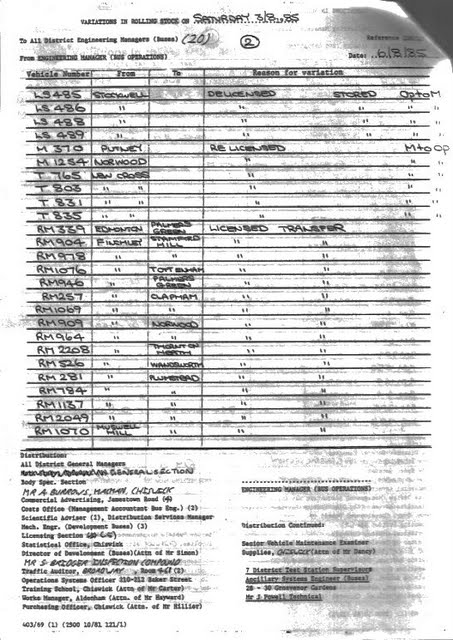 VARIATIONS IN ROLLING STOCK ON SATURDAY 3/8/85
To All District Engineering Managers (Buses) (20) 2 Reference
From ENGINEERING MANAGER (BUS OPERATIONS) Date: 6/8/85
Vehicle Number From To Reason for variation
LS 485 STOCKWELL DELICENSED STORED Op to M
LS 486 " " " "
LS 488 " " " "
LS 489 " " " "
M 370 PUTNEY RELICENSED M to Op
M 1254 NORWOOD " "
T 765 NEW CROSS " "
T 803 " " " "
T 831 " " "
T 835 " " " "
RM 339 EDMONTON PALMERS GREEN LICENSED TRANSFER
RM 904 FINCHLEY STAMFORD HILL " "
RM 978 " " " "
RM 1076 " TOTTENHAM " "
RM 946 " PALMERS GREEN " "
RM 257 " CLAPHAM " "
RM 1069 " " " "
RM 909 " NORWOOD " "
RM 964 " " " "
RM 2208 " THORNTON HEATH " "
RM 526 " WANDSWORTH " "
RM 281 " PLUMSTEAD " "
RM 784 " " " "
RM 1137 " " " "
RM 2049 " " " "
RM 1070 MUSWELL HILL " " "
Distribution:
All District General Managers
GENERAL SECTION
Body Spec. Section
MR A BURROWS, CHISWICK
Commercial Advertising, Jamestown Road (4)
Costs Office (Management Accountant Bus Eng.) (3)
Scientific Adviser (1), Distribution Services Manager
Mech. Engrs. (Development Buses) (3)
Licensing Section
Statistical Office, Chiswick
Director of Development (Buses)(Attn of Mr Simon)
MR S BRIDGER INSPECTION COMPOUND
Traffic Auditor, BROADWAY Room
Operations Systems Officer 210-212 Baker Street
Training School, Chiswick (Attn of Mr Carter)
Works Manager, Aldenham (Attn of Mr Hayward)
Purchasing Officer, Chiswick (Attn. of Mr Hillier)
403/69 (1) (2500 10/81 121/1)
ENGINEERING MANAGER (BUS OPERATIONS)
Distribution Continued:
Senior Vehicle Maintenance Examiner
Supplies, CHISWICK (Attn of Mr Dancy)
7 District Test Station Supervisors
Ancillary Systems Engineer (Buses)
28 - 30 Grosvenor Gardens
Mr J Powell Technical